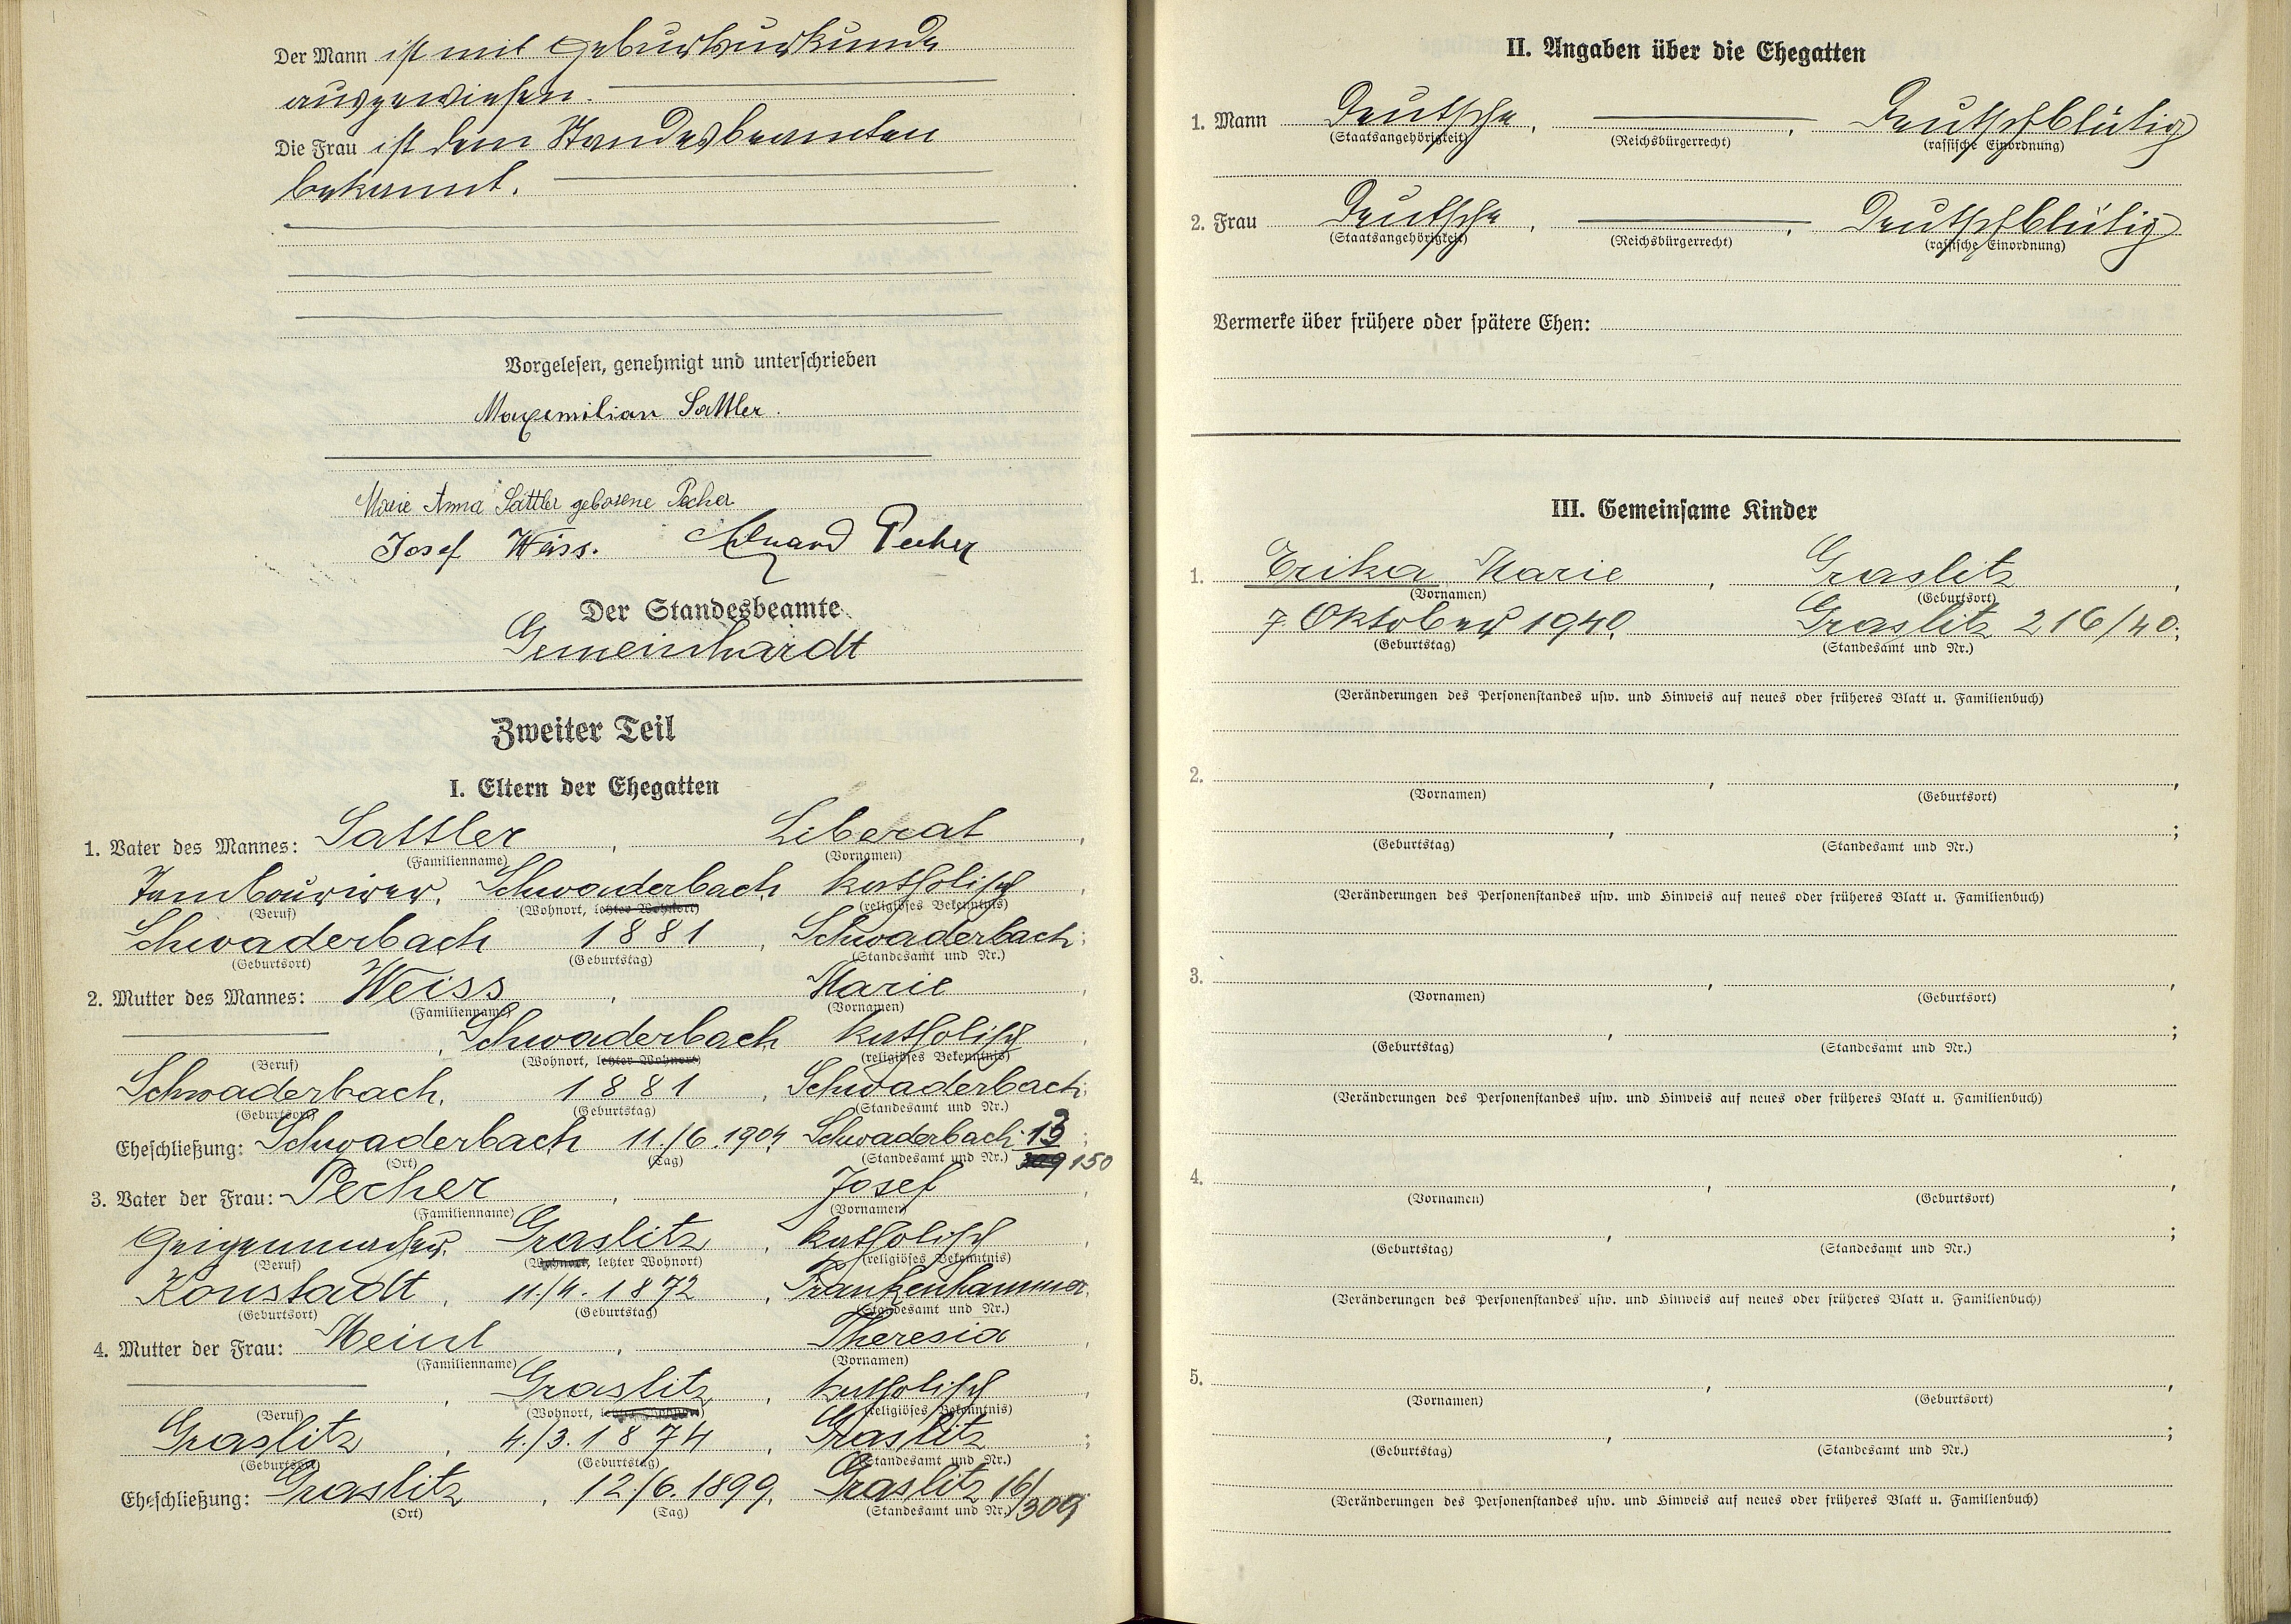 Der Mann ist mit Geburtsurkunde
ausgewiesen.
Die Frau ist dem Standesbeamten
bekannt.
Vorgelesen, genehmigt und unterschrieben
Maxemilian Sattler.
Marie Anna Sattler geborene Pecher
Josef Weiss. Eduard Pecher
Der Standesbeamte
Gemeinhardt
Zweiter Teil
I. Eltern der Ehegatten
1. Vater des Mannes: Sattler, Liberat,
(Familienname) (Vornamen)
Tambourirer, Schwaderbach, katholisch,
(Beruf) (Wohnort, letzter Wohnort) (religiöses Bekenntnis)
Schwaderbach 1881, Schwaderbach;
(Geburtsort) (Geburtstag) (Standesamt und Nr.)
2. Mutter des Mannes: Weiss, Marie,
(Familienname) (Vornamen)
, Schwaderbach, katholisch,
(Beruf) (Wohnort, letzter Wohnort) (religiöses Bekenntnis)
Schwaderbach, 1881, Schwaderbach;
(Geburtsort) (Geburtstag) (Standesamt und Nr.)
Eheschließung: Schwaderbach 11./6.1904, Schwaderbach 13
(Ort) (Tag) (Standesamt und Nr.) 150
3. Vater der Frau: Pecher, Josef,
(Familienname) (Vornamen)
Geigenmacher, Graslitz, katholisch,
(Beruf) (Wohnort, letzter Wohnort) (religiöses Bekenntnis)
Konstadt, 11./4.1872, Frankenhammer,
(Geburtsort) (Geburtstag) (Standesamt und Nr.)
4. Mutter der Frau: Meinl, Theresia,
(Familienname) (Vornamen)
, Graslitz, katholisch,
(Beruf) (Wohnort, letzter Wohnort) (religiöses Bekenntnis)
Graslitz, 4./3.1874, Graslitz;
(Geburtsort) (Geburtstag) (Standesamt und Nr.)
Eheschließung: Graslitz, 12/6.1899, Graslitz 16/309
(Ort) (Tag) (Standesamt und Nr.)
II. Angaben über die Ehegatten
1. Mann Deutsche, , Deutschblütig
(Staatsangehörigkeit) (Reichsbürgerrecht) (rassische Einordnung)
2. Frau Deutsche, , Deutschblütig
(Staatsangehörigkeit) (Reichsbürgerrecht) (rassische Einordnung)
Vermerke über frühere oder spätere Ehen:
III. Gemeinsame Kinder
1. Erika Marie, Graslitz,
(Vornamen) (Geburtsort)
7. Oktober 1940, Graslitz 216/40;
(Geburtstag) (Standesamt und Nr.)
(Veränderungen des Personenstandes usw. und Hinweis auf neues oder früheres Blatt u. Familienbuch)
2. , ,
(Vornamen) (Geburtsort)
, ;
(Geburtstag) (Standesamt und Nr.)
(Veränderungen des Personenstandes usw. und Hinweis auf neues oder früheres Blatt u. Familienbuch)
3. , ,
(Vornamen) (Geburtsort)
, ;
(Geburtstag) (Standesamt und Nr.)
(Veränderungen des Personenstandes usw. und Hinweis auf neues oder früheres Blatt u. Familienbuch)
4. , ,
(Vornamen) (Geburtsort)
, ;
(Geburtstag) (Standesamt und Nr.)
(Veränderungen des Personenstandes usw. und Hinweis auf neues oder früheres Blatt u. Familienbuch)
5. , ,
(Vornamen) (Geburtsort)
, ;
(Geburtstag) (Standesamt und Nr.)
(Veränderungen des Personenstandes usw. und Hinweis auf neues oder früheres Blatt u. Familienbuch)